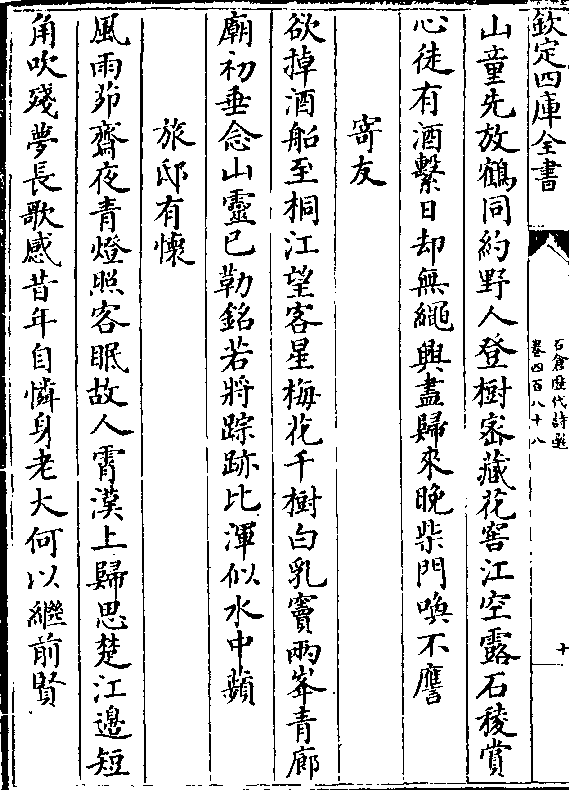 欽定四庫全書
石倉歴代詩選
卷四百八十八
十
山童先放鶴同約野人登樹密藏花窖江空露石稜賞
心徒有酒繫日却無繩興盡歸來晚柴門喚不譍
寄友
欲掉酒船至桐江望客星梅花千樹白乳竇兩峯青廊
廟初垂念山靈已勒銘若將踪跡比渾似水中蘋
旅邸有懷
風雨茆齋夜青燈照客眠故人霄漢上歸思楚江邊短
角吹殘夢長歌感昔年自憐身老大何以繼前賢